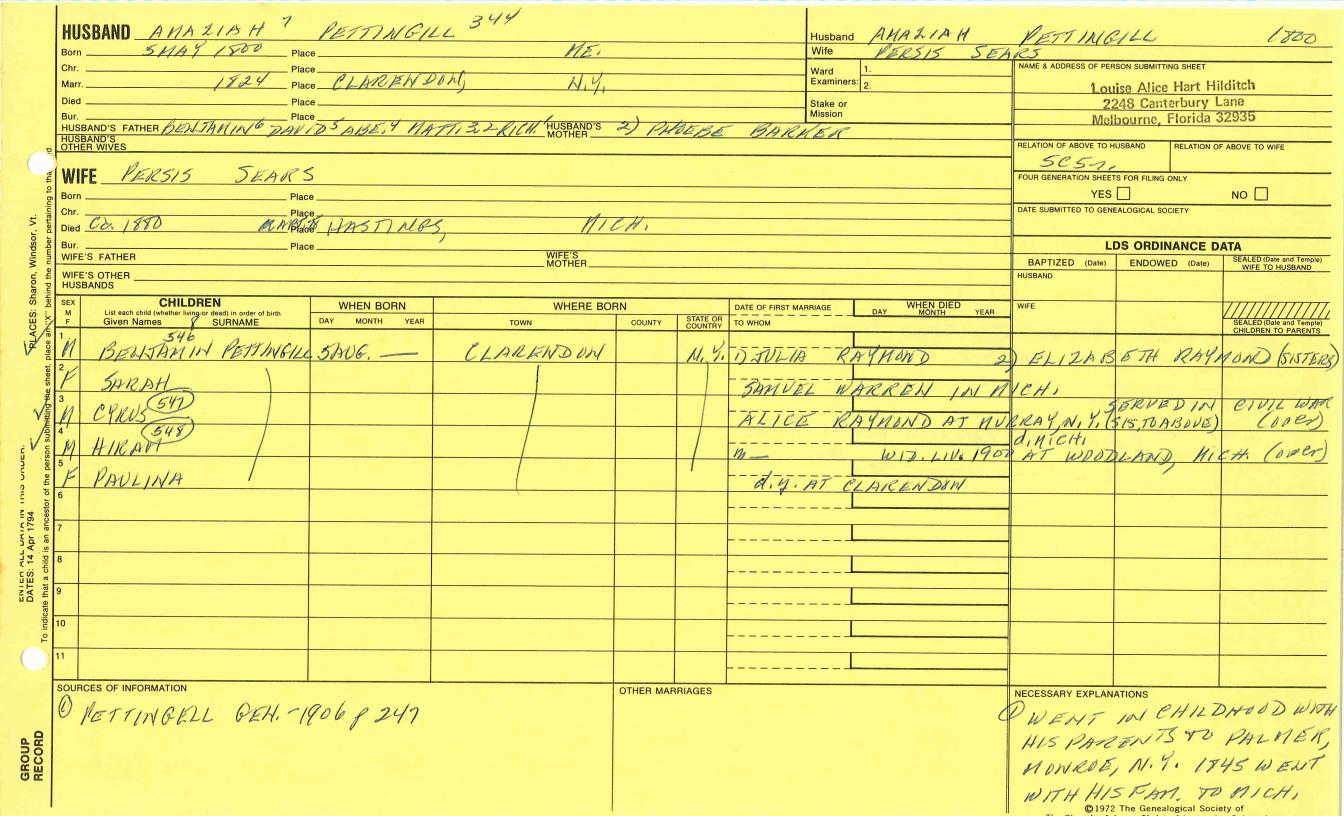 HUSBAND AMAZIAH 7 PETTINGILL 344
Born 5 MAY 1800 Place ME.
Chr. Place
Marr. 1824 Place CLARENDON, N.Y.
Died Place
Bur. Place
HUSBAND'S FATHER BENJAMIN 6 DAVID 5 ABE. 4 MATT. 3,2 RICH. 1 HUSBAND'S MOTHER 2) PHOEBE BARKER
HUSBAND'S OTHER WIVES
Husband AMAZIAH PETTINGILL 1800
Wife PERSIS SEARS
Ward Examiners: 1.
2.
Stake or Mission
NAME & ADDRESS OF PERSON SUBMITTING SHEET
Louise Alice Hart Hilditch
2248 Canterbury Lane
Melbourne, Florida 32935
RELATION OF ABOVE TO HUSBAND RELATION OF ABOVE TO WIFE
5C5r.
FOUR GENERATION SHEETS FOR FILING ONLY
YES NO
DATE SUBMITTED TO GENEALOGICAL SOCIETY
WIFE PERSIS SEARS
Born Place
Chr. Place
Died Ca. 1880 Place HASTINGS, MICH.
Bur. Place
WIFE'S FATHER WIFE'S MOTHER
WIFE'S OTHER HUSBANDS
LDS ORDINANCE DATA
BAPTIZED (Date) ENDOWED (Date) SEALED (Date and Temple) WIFE TO HUSBAND
HUSBAND
WIFE
SEALED (Date and Temple) CHILDREN TO PARENTS
SEX M F CHILDREN WHEN BORN WHERE BORN DATE OF FIRST MARRIAGE WHEN DIED
List each child (whether living or dead) in order of birth
Given Names SURNAME DAY MONTH YEAR TOWN COUNTY STATE OR COUNTRY TO WHOM DAY MONTH YEAR
1 M 546 BENJAMIN PETTINGILL 5 AUG. — CLARENDON N.Y. 1) JULIA RAYMOND 2) ELIZABETH RAYMOND (SISTERS)
2 F SARAH SAMUEL WARREN IN MICH.
3 M CYRUS 547 ALICE RAYMOND AT MURRAY, N.Y. (SIS. TO ABOVE) SERVED IN CIVIL WAR (over)
4 M HIRAM 548 m — WID. LIV. 1900 AT WOODLAND, MICH. (over) d. MICH.
5 F PAULINA d.y. AT CLARENDON
6
7
8
9
10
11
SOURCES OF INFORMATION
① PETTINGELL GEN. -1906 p 247
OTHER MARRIAGES
NECESSARY EXPLANATIONS
① WENT IN CHILDHOOD WITH
HIS PARENTS TO PALMER,
MONROE, N.Y. 1845 WENT
WITH HIS FAM. TO MICH.
©1972 The Genealogical Society of
PLACES: Sharon, Windsor, Vt.
ENTER ALL DATA IN THIS ORDER:
DATES: 14 Apr 1794
To indicate that a child is an ancestor of the person submitting the sheet, place an "X" behind the number pertaining to
GROUP RECORD